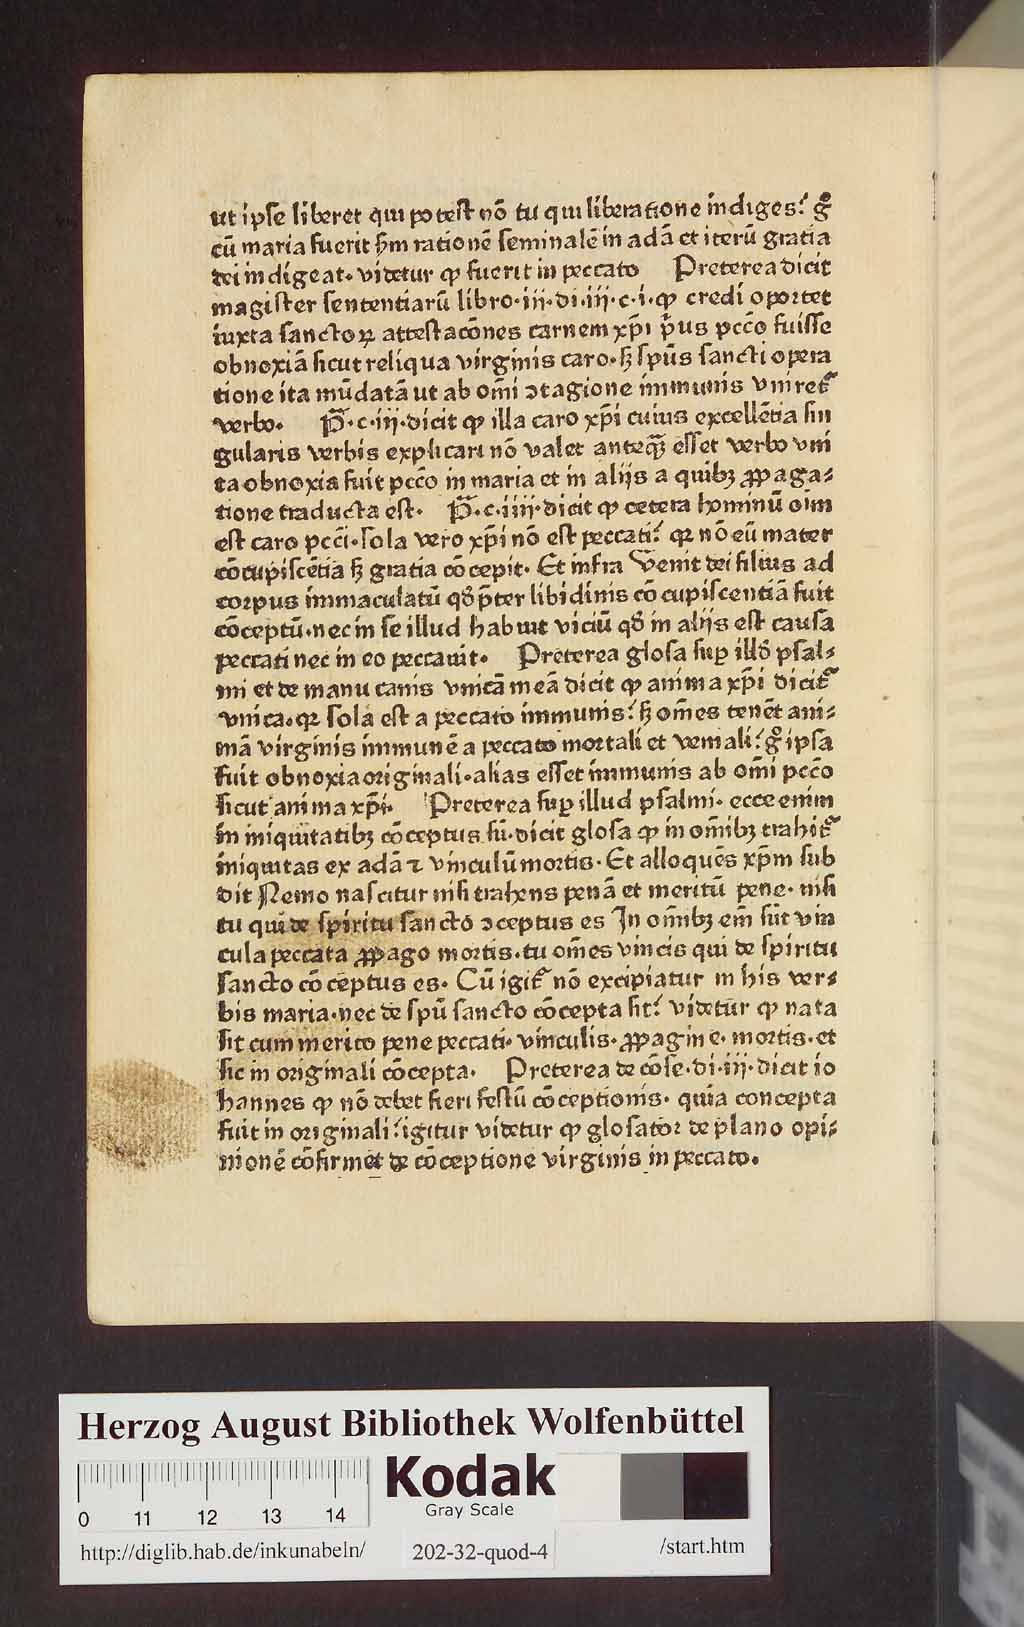 ut ipse liberet qui potest nō tu qui liberatione indiges? gͦ
cū maria fuerit ẜm rationē seminalē in adā et iterū gratia
dei indigeat· videtur ꝙ fuerit in peccato Preterea dicit
magister sententiarū libro·iij·di·iij·c·i·ꝙ credi oportet
iuxta sanctoꝝ attestacōnes carnem xp̄i pͥus pccō fuisse
obnoxiā sicut reliqua virginis caro·sꝫ spūs sancti opera
tione ita mūdatā ut ab om̄i ↄtagione immunis vniret᷑
verbo· P̄·c·iij·dicit ꝙ illa caro xp̄i cuius excellētia sin
gularis verbis explicari nō valet anteqꝫ̄ esset verbo vni
ta obnoxia fuit pccō in maria et in alijs a quibꝫ ꝓpaga⸗
tione traducta est· P̄·c·iiij·dicit ꝙ cetera hominū oīm
est caro pcci̅·sola vero xp̄i nō est peccati? qꝛ nō eū mater
cōcupiscētia sꝫ gratia cōcepit· Et infra Venit dei filius ad
corpus immaculatū qd̕ p̄ter libidinis cōcupiscentiā fuit
cōceptū·nec in se illud habuit viciū qd̕ in alijs est causa
peccati nec in eo peccauit· Preterea glosa suꝑ illd̕ psal⸗
mi et de manu canis vnicā meā dicit ꝙ anima xp̄i dicit᷑
vnica·qꝛ sola est a peccato immunis? sꝫ om̄es tenēt ani⸗
mā virginis immunē a peccato mortali et veniali? gͦ ipsa
fuit obnoxia originali·alias esset immunis ab om̄i pccō
sicut anima xp̄i· Preterea suꝑ illud psalmi· ecce enim
in iniquitatibꝫ cōceptus sū·dicit glosa ꝙ in om̄ibꝫ trahit᷑
iniquitas ex adā ⁊ vinculū mortis· Et alloquēs xp̄m sub
dit Nemo nascitur nisi trahens penā et meritū pene· nisi
tu qui de spiritu sancto ↄceptus es In om̄ibꝫ em̄ sūt vin
cula peccata ꝓpago mortis·tu om̄es vincis qui de spiritu
sancto cōceptus es· Cū igit᷑ nō excipiatur in his ver⸗
bis maria·nec de spū sancto cōcepta sit? videtur ꝙ nata
sit cum merito pene peccati· vinculis·ꝓpagine· mortis·et
sic in originali cōcepta· Preterea de cōse·di·iij·dicit io
hannes ꝙ nō debet fieri festū cōceptionis· quia concepta
fuit in originali? igitur videtur ꝙ glosator de plano opi⸗
nionē cōfirmet de cōceptione virginis in peccato·
Herzog August Bibliothek Wolfenbüttel
Kodak
Gray Scale
0 11 12 13 14
http://diglib.hab.de/inkunabeln/ 202-32-quod-4 /start.htm